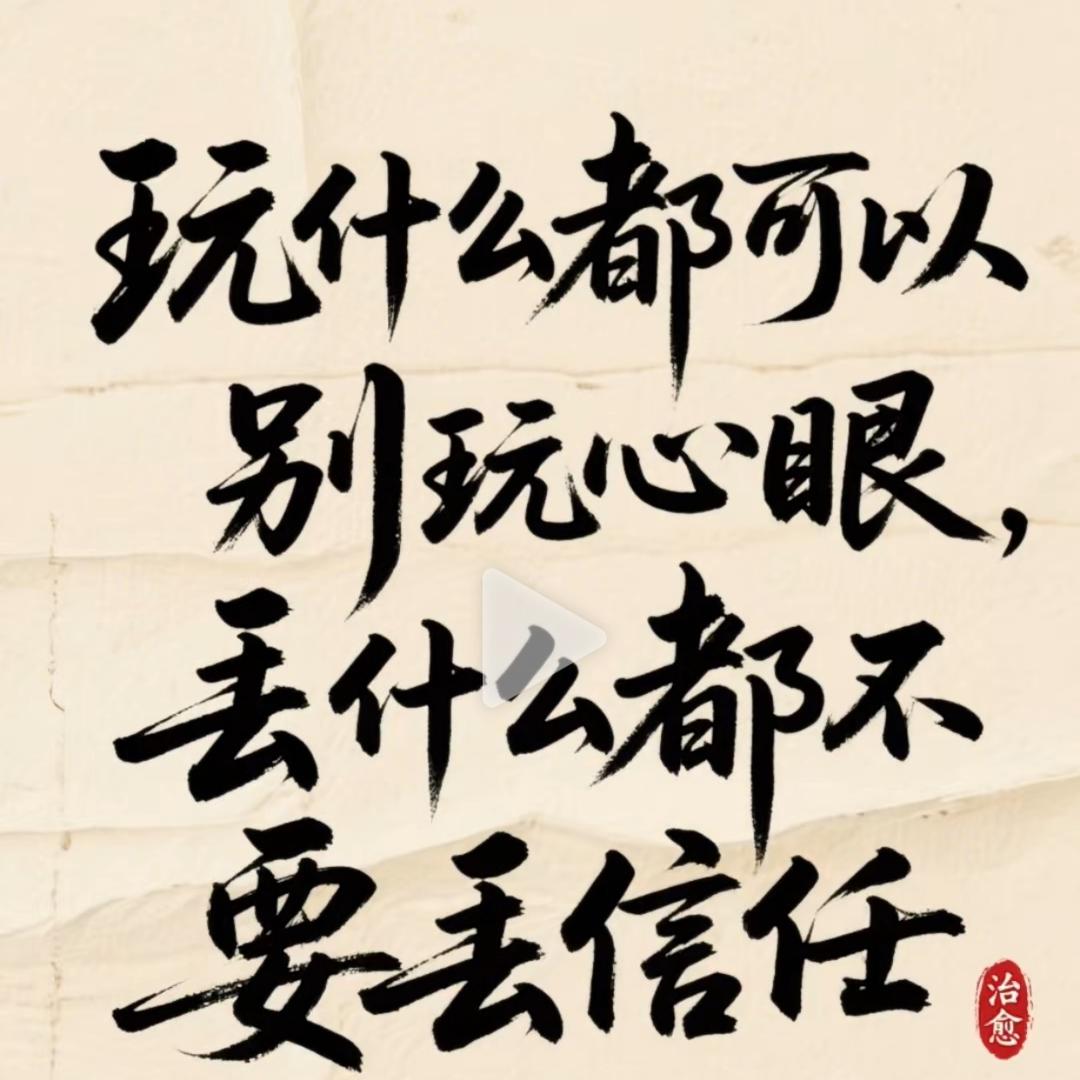 玩什么都可以
别玩心眼，
丢什么都不
要丢信任
治愈